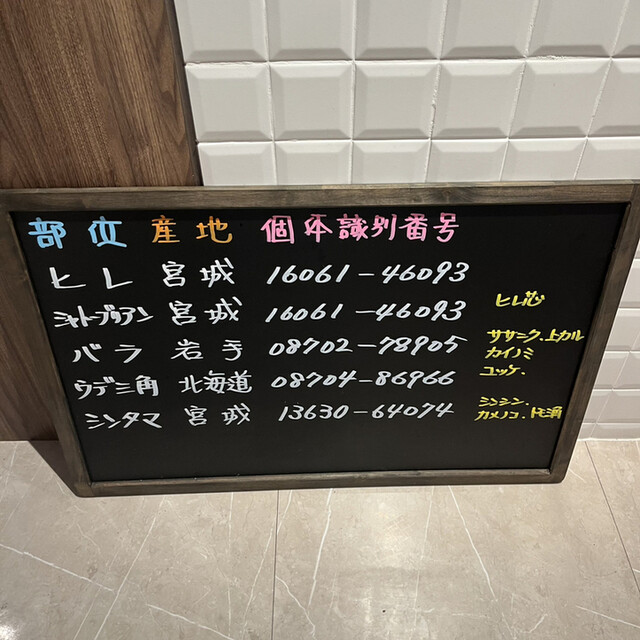 部位 産地 個体識別番号
ヒレ 宮城 16061-46093
シャトーブリアン 宮城 16061-46093 ヒレ芯
バラ 岩手 08702-78905 ササミク、上カル
カイノミ
ユッケ、
ウデ三角 北海道 08704-86966
シンタマ 宮城 13630-64074 シンシン、
カメノコ、トモ三角